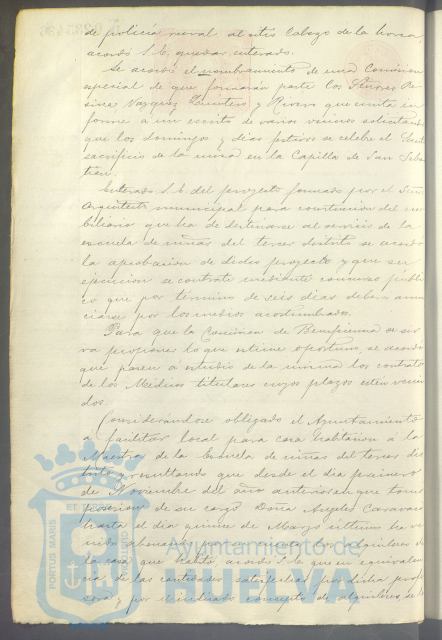 de policía rural al sitio Cabezo de la horca
acordó S.E. quedar enterado.
Se acordó el nombramiento de una Comisión
especial de que formarán parte los Señores
Vazquez, Quintero y Rivero que emita in
forme a un escrito de varios vecinos solicitando
que los domingos y días festivos se celebre el Santo
sacrificio de la misa en la Capilla de San Sebas
tian.
Enterado S.E. del proyecto formado por el Señor
Arquitecto municipal para construcción del mo
biliario que ha de destinarse al servicio de la
escuela de niñas del tercer distrito se acordó
la aprobación de dicho proyecto y que su
ejecución se contrate mediante concurso públi
co que por término de seis días deberá anun
ciarse por los medios acostumbrados.
Para que la Comisión de Beneficencia se sir
va proponer lo que estime oportuno, se acordó
que pasen a estudio de la misma los contratos
de los Médicos titulares cuyos plazos estén venci
dos.
Considerándose obligado el Ayuntamiento
a facilitar local para casa habitación a la
Maestra de la Escuela de niñas del tercer dis
trito y resultando que desde el día primero
de Noviembre del año anterior en que tomó
posesión de su cargo Doña Angeles Carvajal
hasta el día quince de Marzo último ha ve
nido abonando por su cuenta los alquileres de
la casa que habita, acordó S.E. que en equivalen
cia de las cantidades satisfechas por dicha profe
sora y por el indicado concepto de alquileres, se l
PORTUS MARIS
ET TERRAE CUSTODIA
Ayuntamiento de
HUELVA